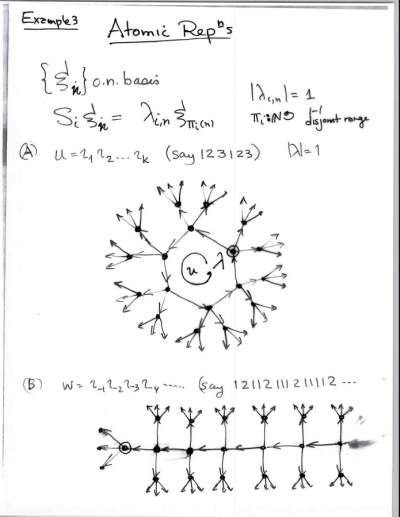 Example 3
Atomic Repⁿs
{ξₙ} o.n. basis
|λᵢ,ₙ| = 1
Sᵢ ξₙ = λᵢ,ₙ ξπᵢ(ₙ)
πᵢ: ℕ↺ 1-1
disjoint range
Ⓐ u = i₁ i₂ ... iₖ (say 123123) |λ| = 1
u, λ
Ⓑ w = i₋₁ i₋₂ i₋₃ i₋₄ ..... (say 1211211121112 ...